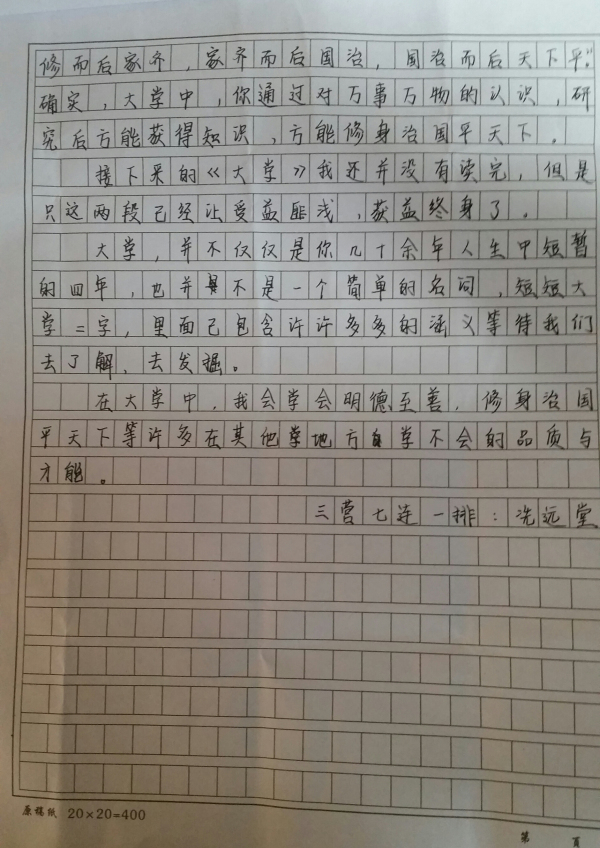 修而后家齐，家齐而后国治，国治而后天下平。”
确实，大学中，你通过对万事万物的认识，研
究后方能获得知识，方能修身治国平天下。
接下来的《大学》我还并没有读完，但是
只这两段已经让受益匪浅，获益终身了。
大学，并不仅仅是你几十余年人生中短暂
的四年，也并不是一个简单的名词，短短大
学二字，里面已包含许许多多的涵义等待我们
去了解，去发掘。
在大学中，我会学会明德至善，修身治国
平天下等许多在其他地方学不会的品质与
才能。
三营七连一排：冼远堂
原稿纸 20×20=400
第 页